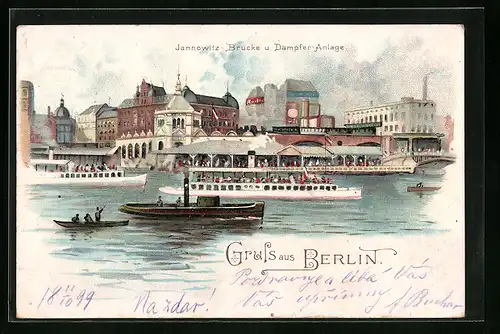 Jannowitz-Brücke u Dampfer-Anlage.
Gruß aus BERLIN.
18 11/10 99 Na zdar!
Pozdravuje a líbá Vás
Vás upřímný